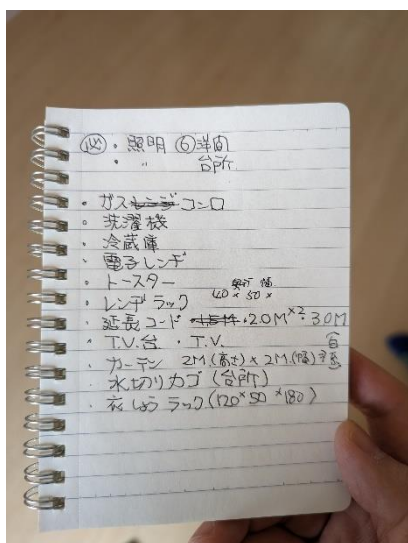 必 ・照明 ⑥洋間
・ 〃 台所
・ガスコンロ
・洗濯機
・冷蔵庫
・電子レンヂ
・トースター
奥行 幅
・レンヂラック 40×50×
・延長コード ・2.0M×2 3.0M
・T.V.台 ・T.V.
・カーテン 2M(高さ)×2M(幅)
・水切りカゴ(台所)
・衣しょうラック(120×50×180)